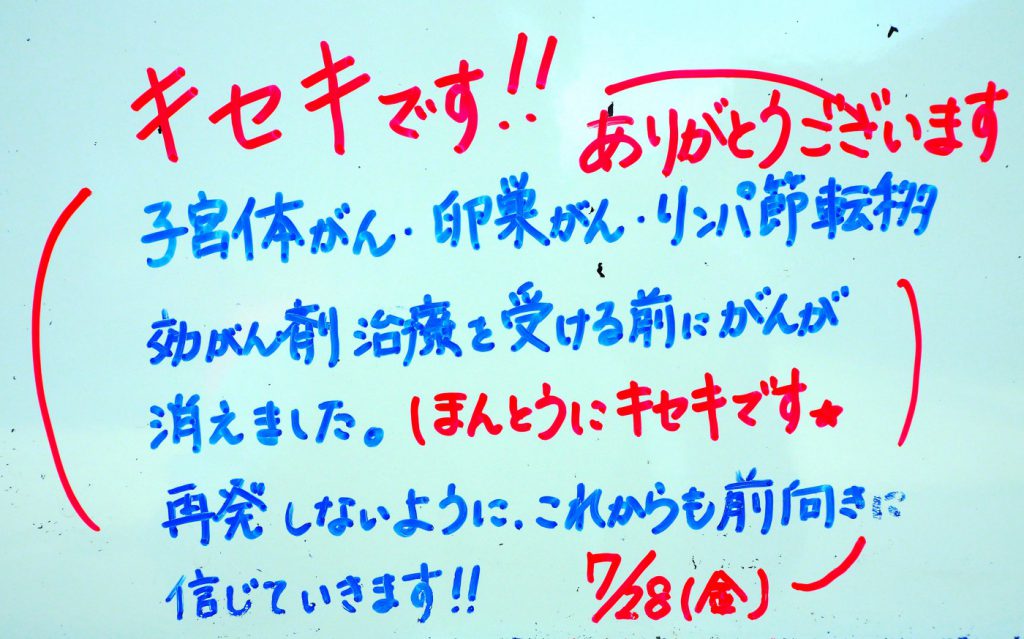 キセキです!!
ありがとうございます
子宮体がん・卵巣がん・リンパ節転移
効がん剤治療を受ける前にがんが
消えました。ほんとうにキセキです★
再発しないように、これからも前向きに
信じていきます!!
7/28(金)